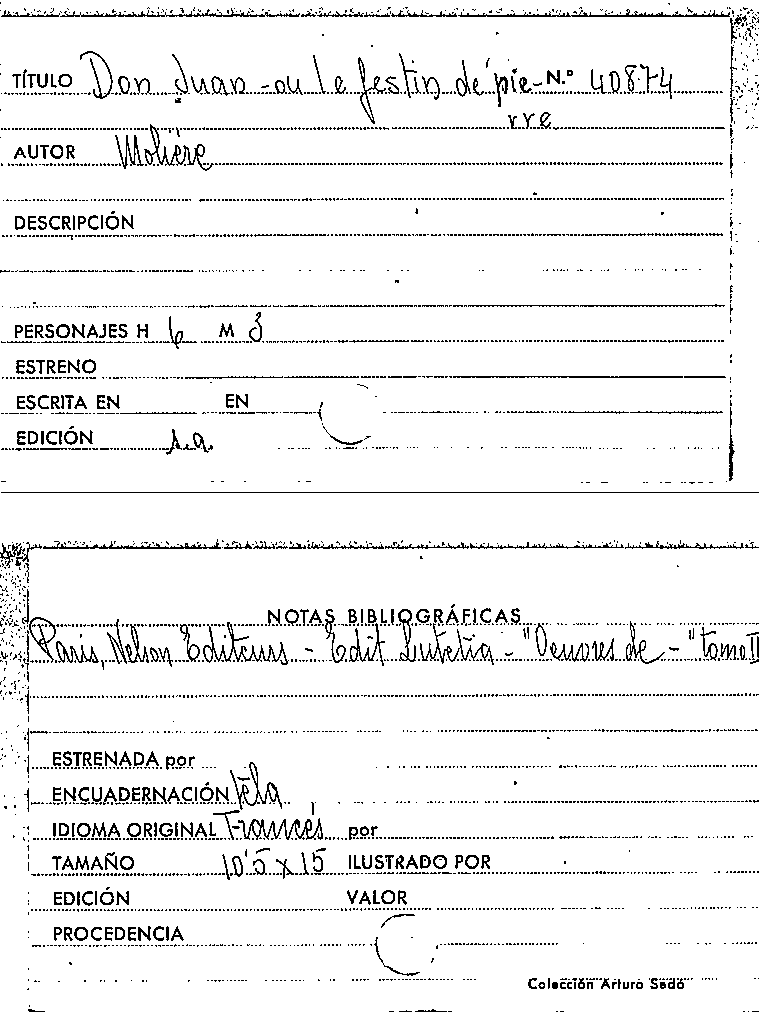 TÍTULO Don Juan - ou le festin de pie- N.º 40874
rre
AUTOR Molière
DESCRIPCIÓN
PERSONAJES H 6 M 3
ESTRENO
ESCRITA EN EN
EDICIÓN s.a.
NOTAS BIBLIOGRÁFICAS
Paris, Nelson Editeurs - Edit Lutetia - "Oeuvres de - " tomo II
ESTRENADA por
ENCUADERNACIÓN tela
IDIOMA ORIGINAL Francés por
TAMAÑO 10'5 x 15 ILUSTRADO POR
EDICIÓN VALOR
PROCEDENCIA
Colección Arturo Sedó